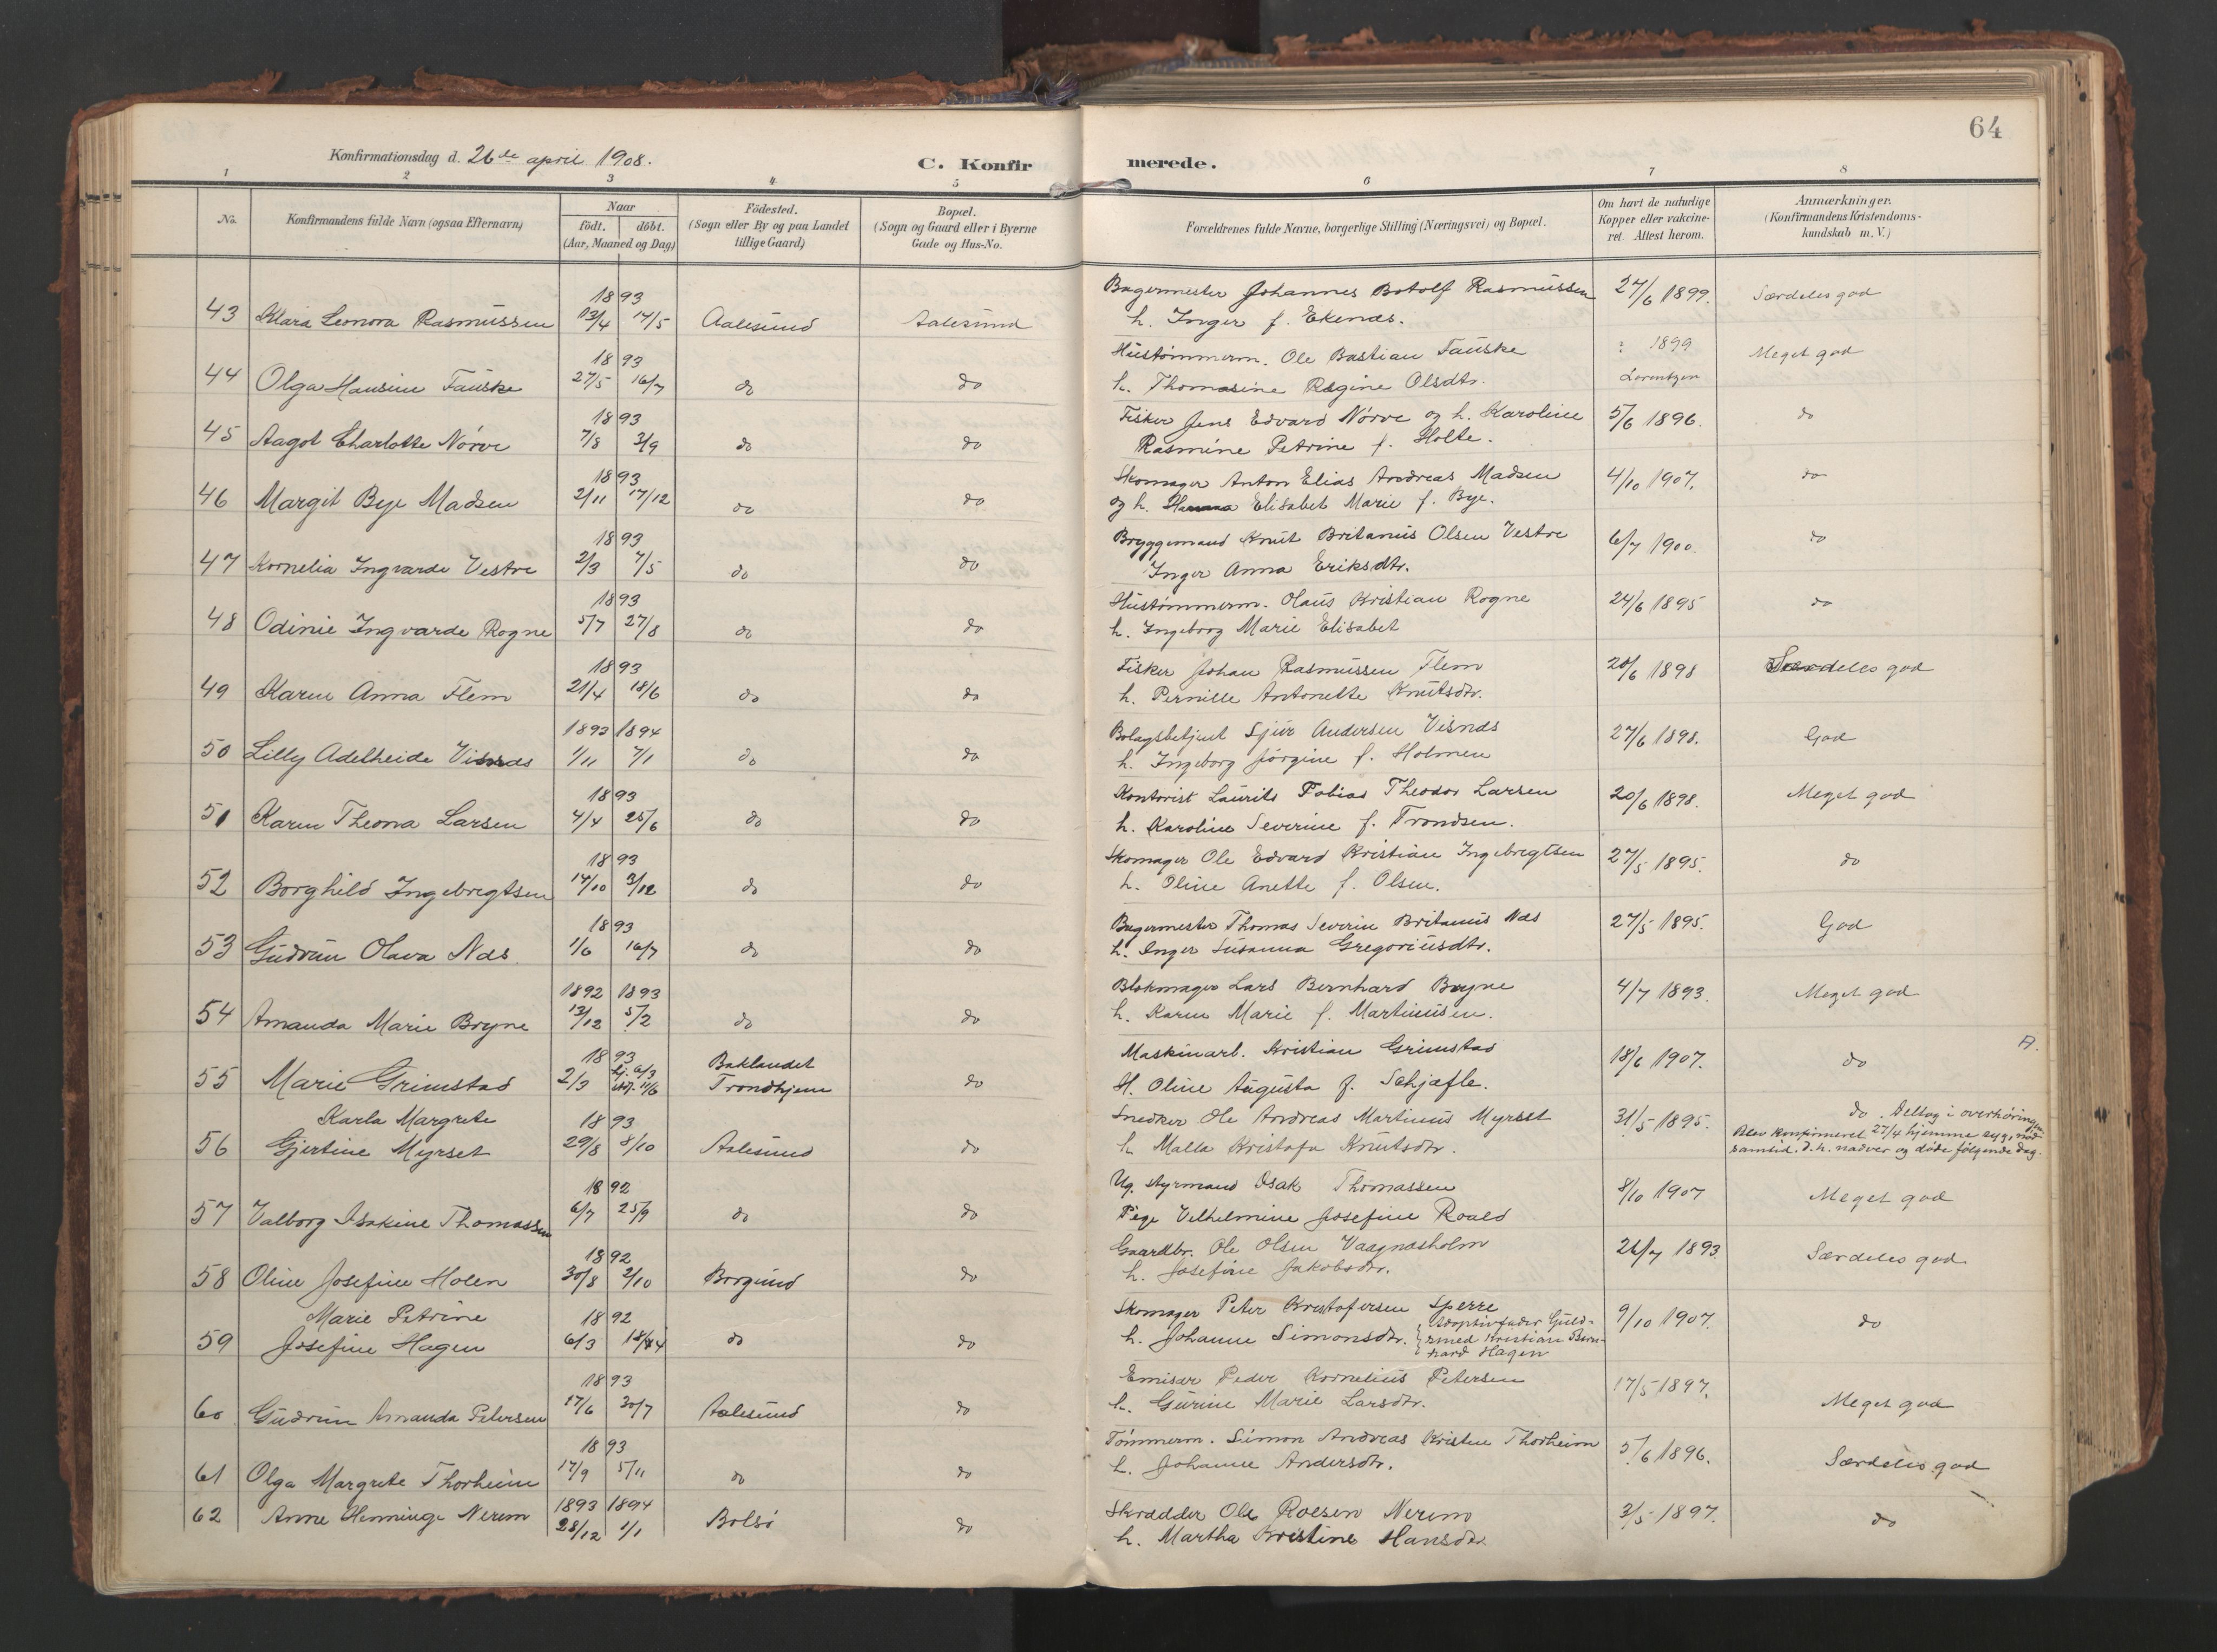 64
Konfirmationsdag d. 26de april 1908.
C. Konfirmerede.
1 2 3 4 5 6 7 8
No.
Konfirmandens fulde Navn (ogsaa Efternavn)
Naar
födt. döbt.
(Aar, Maaned og Dag)
Födested.
(Sogn eller By og paa Landet
tillige Gaard)
Bopæl.
(Sogn og Gaard eller i Byerne
Gade og Hus-No.
Forældrenes fulde Navne, borgerlige Stilling (Næringsvei) og Bopæl.
Om havt de naturlige
Kopper eller vakcine-
ret. Attest herom.
Anmærkninger.
(Konfirmandens Kristendoms-
kundskab m. V.)
1893 Bagermester Johannes Botolf Rasmussen 27/6 1899. Særdeles god
43 Klara Leonora Rasmussen 13/4 14/5 Aalesund Aalesund h. Inger f. Ekenæs.
1893 Hustømmerm. Ole Bastian Fauske ? 1899 Meget god
44 Olga Hansine Fauske 27/5 16/7 do do h. Thomasine Regine Olsdtr. Lorentzen
1893 Fisker Jens Edvard Nørve og h. Karoline 5/6 1896. do
45 Aagot Charlotte Nørve 7/8 3/9 do do Rasmine Petrine f. Holte.
1893 Skomager Anton Elias Andreas Madsen 4/10 1907. do
46 Margit Bye Madsen 2/11 17/12 do do og h. Elisabet Marie f. Bye.
1893 Bryggemand Knut Britanus Olsen Vestre 6/7 1900. do
47 Kornelia Ingvarde Vestre 2/3 7/5 do do Inger Anna Eriksdtr.
1893 Hustømmerm. Olaus Kristian Rogne 24/6 1895 do
48 Odinie Ingvarde Rogne 5/7 27/8 do do h. Ingeborg Marie Elisabet
1893 Fisker Johan Rasmussen Flem 28/6 1898 Særdeles god
49 Karen Anna Flem 21/4 18/6 do do h. Pernille Antonette Knutsdtr.
1893 1894 Bolagsbetjent Sjur Andersen Visnæs 27/6 1898. God
50 Lilly Adelheide Visnæs 1/11 7/1 do do h. Ingeborg Jørgine f. Holmen
1893 Kontorist Laurits Tobias Theodor Larsen 20/6 1898. Meget god
51 Karen Theona Larsen 4/4 25/6 do do h. Karoline Severine f. Trondsen.
1893 Skomager Ole Edvard Kristian Ingebregtsen 27/5 1895. do
52 Borghild Ingebregtsen 14/10 3/12 do do h. Oline Anette f. Olsen.
1893 Bagermester Thomas Severin Britanus Næs 27/5 1895. God
53 Gudrun Olava Næs. 1/6 16/7 do do h. Inger Susanna Gregoriusdtr.
1892 1893 Blokmager Lars Bernhard Bryne 4/7 1893. Meget god
54 Amanda Marie Bryne 13/12 5/2 do do h. Karen Marie f. Martinusen.
1893 Baklandet Maskinarb. Kristian Grimstad 18/6 1907. do A.
55 Marie Grimstad 2/3 hj. 6/3 11/6 Trondhjem do H. Oline Augusta f. Schjæfle.
Karla Margrete 1893 Snedker Ole Andreas Martinus Myrset 31/5 1895. do. Deltog i overhøringen
56 Gjertine Myrset 29/8 8/10 Aalesund do h. Malla Kristofa Knutsdtr. Blev konfirmeret 27/4 hjemme syg, nød
samtid. d. h. nadver og døde følgende dag.
1892 Ug. styrmand Isak Thomassen 8/10 1907 Meget god
57 Valborg Isakine Thomassen 6/7 25/9 do do Pige Vilhelmine Josefine Roald
1892 Gaardbr. Ole Olsen Vaagnæsholm 26/7 1893. Særdeles god
58 Oline Josefine Holen 30/8 2/10 Borgund do h. Josefine Jakobsdtr.
Marie Petrine 1892 Skomager Peter Kristofersen Sperre 9/10 1907. do
59 Josefine Hagen 6/3 18/44 do do h. Johanne Simonsdtr. Adoptivfader Guld-
smed Kristian Bern-
hard Hagen
1893 Emisær Peder Kornelius Petersen 17/5 1897. Meget god
60 Gudrun Amanda Petersen 17/6 30/7 Aalesund do h. Gurine Marie Larsdtr.
1893 Tømmerm. Simon Andreas Kristen Thorheim 5/6 1896. Særdeles god
61 Olga Margrete Thorheim 17/9 5/11 do do h. Johanne Andersdtr.
1893 1894 Skrædder Ole Roesen Nerem 3/5 1897. do
62 Anne Henninge Nerem 28/12 1/1 Bolsø do h. Martha Kristine Hansdtr